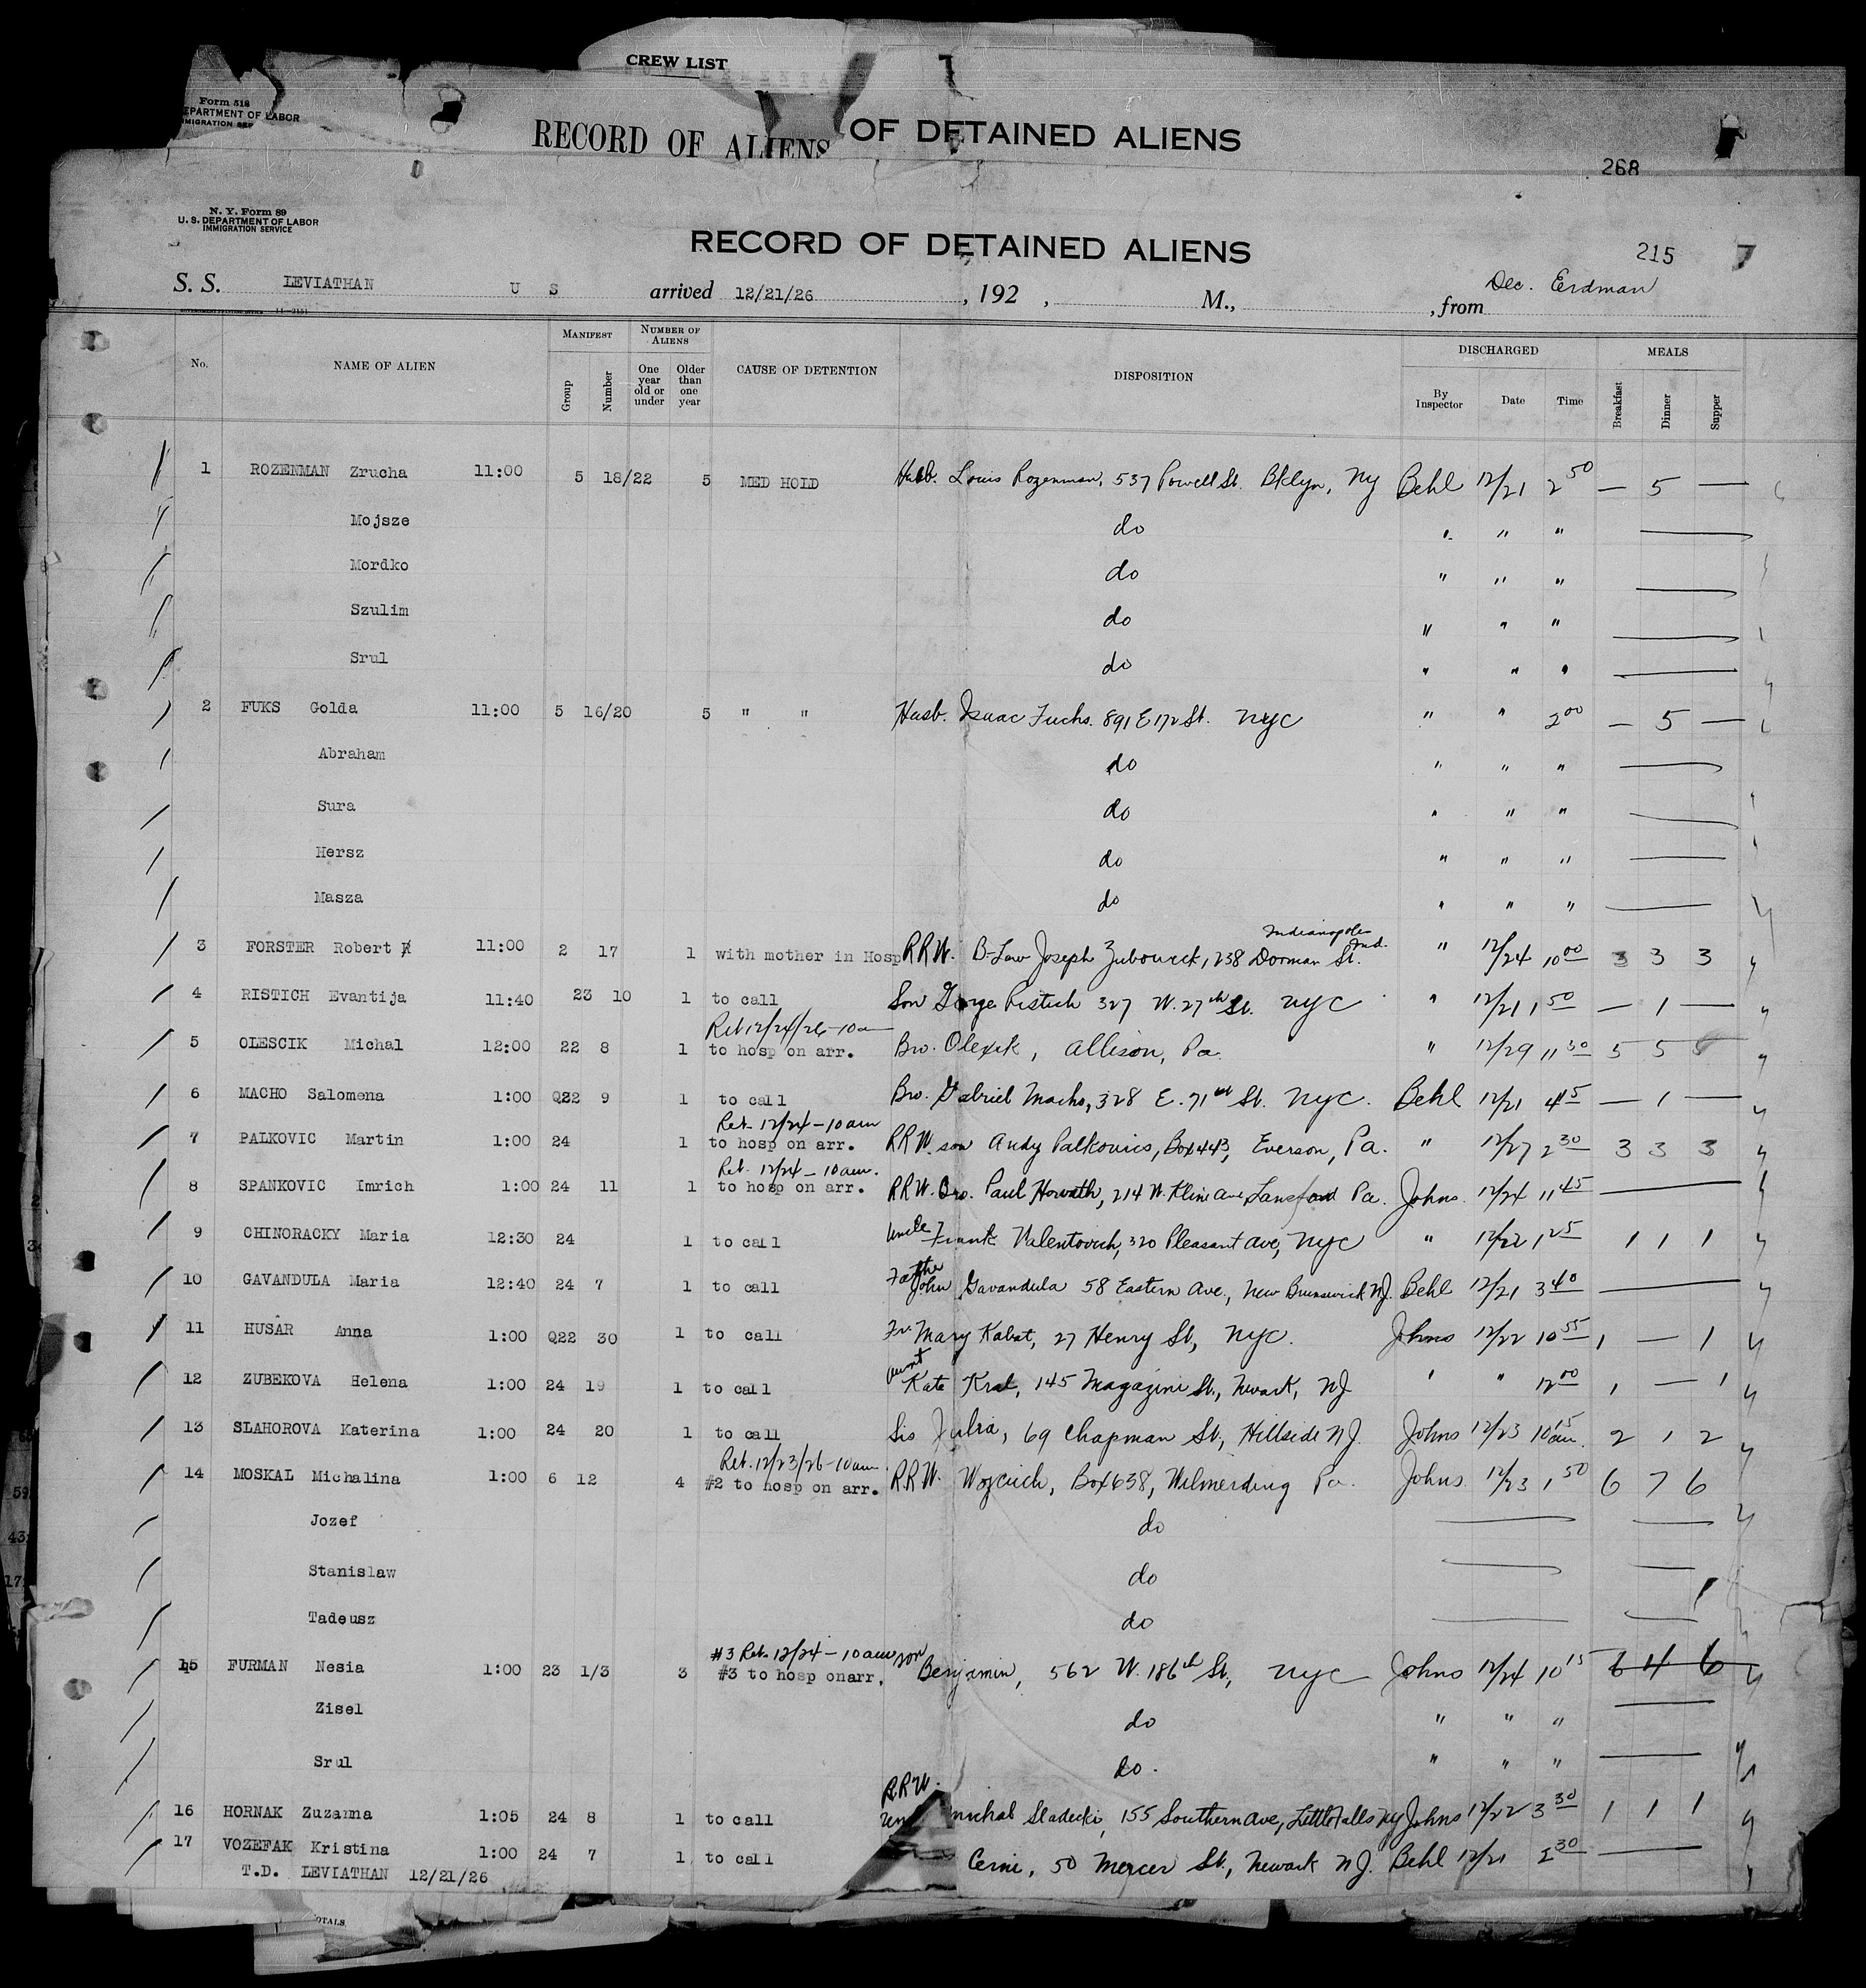 CREW LIST
Form 518
DEPARTMENT OF LABOR
RECORD OF ALIENS OF DETAINED ALIENS
268
N. Y. Form 89
U. S. DEPARTMENT OF LABOR
IMMIGRATION SERVICE
RECORD OF DETAINED ALIENS
215
S. S. LEVIATHAN U S arrived 12/21/26, 192 , M., , from Dec. Erdman
No. NAME OF ALIEN MANIFEST Group Number NUMBER OF ALIENS One year old or under Older than one year CAUSE OF DETENTION DISPOSITION DISCHARGED By Inspector Date Time MEALS Breakfast Dinner Supper
1 ROZENMAN Zrucha 11:00 5 18/22 5 MED HOLD Husb. Louis Rozenman, 537 Powell St. Bklyn, NY Behl 12/21 2 50 — 5 —
Mojsze do " " "
Mordko do " " "
Szulim do " " "
Srul do " " "
2 FUKS Golda 11:00 5 16/20 5 " " Husb. Isaac Fuchs. 891 E 172 St. NYC " " 2 00 — 5 —
Abraham do " " "
Sura do " " "
Hersz do " " "
Masza do " " "
3 FORSTER Robert 11:00 2 17 1 with mother in Hosp RRW. B-Law Joseph 238 Dorman St. Indianapolis Ind. " 12/24 10 00 3 3 3
4 RISTICH Evantija 11:40 23 10 1 to call Son George Ristich 327 W. 27th St. NYC " 12/21 1 50 — 1 —
Ret 12/24/26-10am
5 OLESCIK Michal 12:00 22 8 1 to hosp on arr. Bro. Olexik, Allison, Pa. " 12/29 11 30 5 5 5
6 MACHO Salomena 1:00 Q22 9 1 to call Bro. Gabriel Macho, 328 E. 71st St. NYC. Behl 12/21 4 15 — 1 —
Ret. 12/24-10am
7 PALKOVIC Martin 1:00 24 1 to hosp on arr. RRW. son Andy Palkovics, Box 443, Everson, Pa. " 12/27 2 30 3 3 3
Ret. 12/24-10am.
8 SPANKOVIC Imrich 1:00 24 11 1 to hosp on arr. RRW. Bro. Paul Horvath, 214 W. Kline Ave, Lansford Pa. Johns 12/24 11 45
9 CHINORACKY Maria 12:30 24 1 to call Uncle Frank Valentovich, 320 Pleasant Ave, NYC " 12/22 1 25 1 1 1
10 GAVANDULA Maria 12:40 24 7 1 to call Father John Gavandula 58 Eastern Ave., New Brunswick NJ. Behl 12/21 3 40
11 HUSÂR Anna 1:00 Q22 30 1 to call Fr. Mary Kabat, 27 Henry St, NYC. Johns 12/22 10 55 1 — 1
12 ZUBEKOVA Helena 1:00 24 19 1 to call Aunt Kate Kral, 145 Magazine St., Newark, NJ " " 12 00 1 — 1
13 SLAHOROVA Katerina 1:00 24 20 1 to call Sis Julia, 69 Chapman St., Hillside NJ. Johns 12/23 10 15 am. 2 1 2
Ret. 12/23/26-10am
14 MOSKAL Michalina 1:00 6 12 4 #2 to hosp on arr. RRW. Wojcieh, Box 638, Wilmerding Pa. Johns 12/23 1 50 6 7 6
Jozef do
Stanislaw do
Tadeusz do
#3 Ret. 12/24-10am
15 FURMAN Nesia 1:00 23 1/3 3 #3 to hosp onarr. son Benjamin, 562 W. 186th St., NYC Johns 12/24 10 15 6 4 6
Zisel do " " "
Srul do. " " "
RRW.
16 HORNAK Zuzanna 1:05 24 8 1 to call Michal Sladecki, 155 Southern Ave, Little Falls NY Johns 12/22 3 30 1 1 1
17 VOZEFAK Kristina 1:00 24 7 1 to call Cerni, 50 Mercer St., Newark NJ. Behl 12/21 2 30
T.D. LEVIATHAN 12/21/26
TOTALS